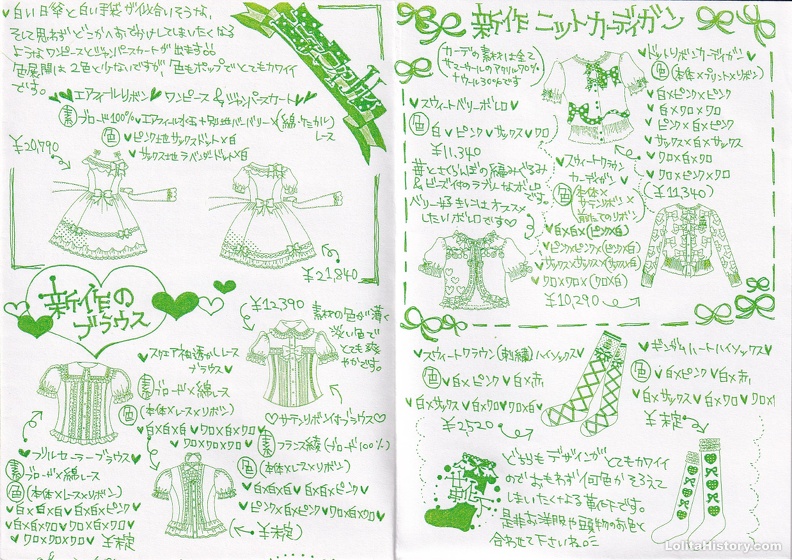 ♥白い日傘と白い手袋が似合いそうな、
そして思わずどこかへおでかけしてしまいたくなる
ようなワンピースとジャンパースカートが出ます!!
色展開は2色と少ないですが、色もポップでとてもカワイイ
です。
♥エアフィールリボン♥ワンピース&ジャンパースカート♥
素 ブロード100%
(綿・ケミカルレース
色 ♥ピンク地サックスドット×白
♥サックス地ラベンダードット×白
¥20,790
¥21,840
新作の
ブラウス
♥スクエア袖透かしレース
ブラウス♥
素 ブロード×綿レース
色 (本体×レース×リボン)
♥白×白×白 ♥クロ×白×クロ
♥クロ×クロ×クロ
¥12,390
素材の色が薄く
淡い色で
とても爽
やかです。
♡サテンリボン付ブラウス♡
素 フランス綾(ブロード100%)
色 (本体×レース×リボン)
♥白×白×白 ♥白×白×ピンク
♥ピンク×白×ピンク ♥クロ×白×クロ
¥未定
♥フリルセーラーブラウス♥
素 ブロード×綿レース
色 (本体×レース×リボン)
♥白×白×白 ♥白×白×ピンク
♥白×白×クロ ♥クロ×白×クロ
♥クロ×クロ×クロ ¥未定
新作ニットカーディガン
(カーデの素材は全て
サマーウールのアクリル70%
+ウール30%です
♥ドットリボンカーディガン♥
色 (本体×プリント×リボン)
♥白×ピンク×ピンク
♥白×クロ×クロ
♥ピンク×白×ピンク
♥サックス×白×サックス
♥クロ×白×クロ
♥クロ×クロ×クロ
(¥11,340)
♥スウィートベリーボレロ♥
色 白♥ピンク♥サックス♥クロ
¥11,340
苺とさくらんぼの編みぐるみ
&ビーズ付のラブリーなボレロ
です。
ベリー好きにはオススメ
したいボレロです♡
♥スウィートクラウン
カーディガン♥
色 (本体×
サテンリボン×
前たてのリボン)
♥白×白×(ピンク×白)
♥ピンク×ピンク×(ピンク×白)
♥サックス×サックス×(サックス×白)
♥クロ×クロ×(クロ×白)
¥10,290
♥スウィートクラウン(刺繍)ハイソックス♥
色 ♥白×ピンク ♥白×赤
♥白×サックス ♥白×クロ ♥クロ×白
¥2,520
♥ギンガムハートハイソックス♥
色 ♥白×ピンク ♥白×赤
♥白×サックス ♥白×クロ ♥クロ×白
¥未定
靴下
どちらもデザインがとてもカワイイ
のでおもわず何色かそろえて
しまいたくなる靴下です。
是非お洋服や頭物のお色と
合わせて下さいね。
LolitaHistory.com